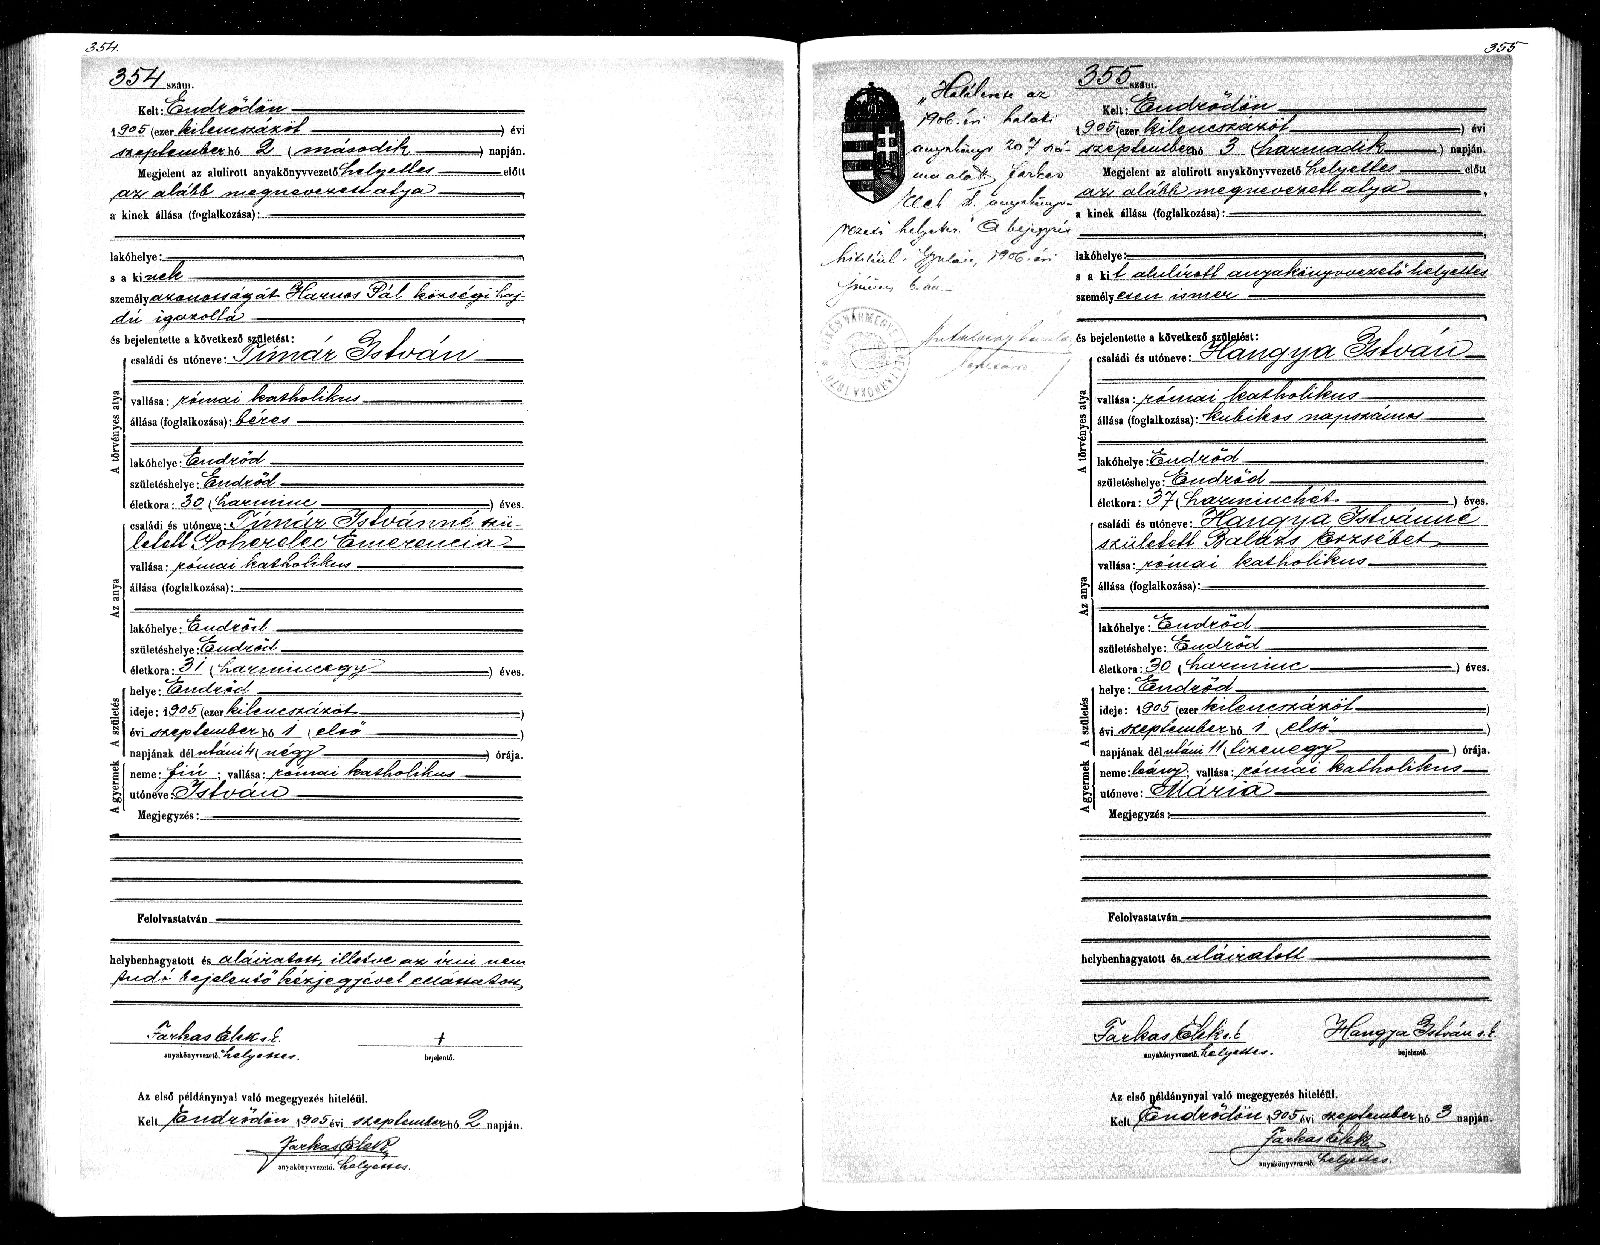 354.
354 szám.
Kelt: Endrődön
1905 (ezer kilencszázöt) évi
szeptember hó 2 (második) napján.
Megjelent az alulirott anyakönyvvezető helyettes előtt
az alább megnevezett atya,
a kinek állása (foglalkozása):
lakóhelye:
s a kinek
személyazonosságát Harnos Pál községi haj-
dú igazolta
és bejelentette a következő születést:
A törvényes atya
családi és utóneve: Tímár István
vallása: római katholikus
állása (foglalkozása): béres
lakóhelye: Endrőd
születéshelye: Endrőd
életkora: 30 (harminc) éves.
Az anya
családi és utóneve: Tímár Istvánné szü-
letett Emerencia
vallása: római katholikus
állása (foglalkozása):
lakóhelye: Endrőd
születéshelye: Endrőd
életkora: 31 (harmincegy) éves.
A születés
helye: Endrőd
ideje: 1905 (ezer kilencszázöt)
évi szeptember hó 1 (első)
napjának dél utáni 4 (négy) órája.
A gyermek
neme: fiú; vallása: római katholikus
utóneve: István
Megjegyzés:
Felolvastatván
helybenhagyatott és aláiratott, illetve az írni nem
tudó bejelentő kézjegyével elláttatott,
Farkas Elek s.k. +
anyakönyvvezető. helyettes. bejelentő.
Az első példánynyal való megegyezés hiteléül.
Kelt Endrődön 1905 évi szeptember hó 2 napján.
Farkas Elek
anyakönyvvezető. helyettes.
355
„ az
1906. évi halotti
anyakönyv 207 szá-
ma alatt. Farkas
Elek s. k. anyakönyv-
vezető helyettes." A bejegyzés
hitéül. Gyulán, 1906. évi
június 6.án.
355 szám.
Kelt: Endrődön
1905 (ezer kilencszázöt) évi
szeptember hó 3 (harmadik) napján.
Megjelent az alulirott anyakönyvvezető helyettes előtt
az alább megnevezett atya
a kinek állása (foglalkozása):
lakóhelye:
s a kit alulírott anyakönyvvezető helyettes
személyesen ismer
és bejelentette a következő születést:
A törvényes atya
családi és utóneve: Hangya István
vallása: római katholikus
állása (foglalkozása): kubikos napszámos
lakóhelye: Endrőd
születéshelye: Endrőd
életkora: 37 (harminchét.) éves.
Az anya
családi és utóneve: Hangya Istvánné
született Balázs Erzsébet
vallása: római katholikus
állása (foglalkozása):
lakóhelye: Endrőd
születéshelye: Endrőd
életkora: 30 (harminc) éves.
A születés
helye: Endrőd
ideje: 1905 (ezer kilencszázöt)
évi szeptember hó 1 (első)
napjának dél utáni 11 (tizenegy) órája.
A gyermek
neme: leány, vallása: római katholikus
utóneve: Mária
Megjegyzés:
Felolvastatván
helybenhagyatott és aláiratott
Farkas Elek s.k. Hangya István s.k.
anyakönyvvezető. helyettes. bejelentő.
Az első példánynyal való megegyezés hiteléül.
Kelt Endrődön 1905 évi szeptember hó 3 napján.
Farkas Elek
anyakönyvvezető. helyettes.